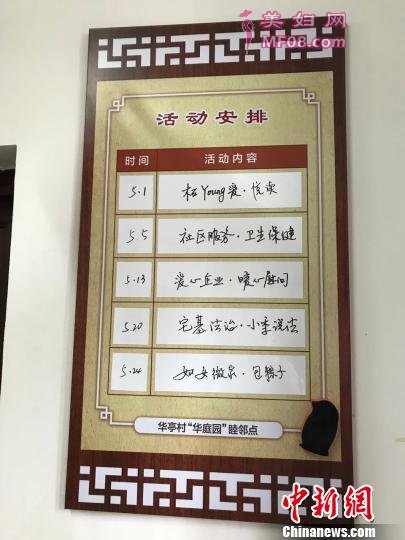 美妇网
MF08.com
活动安排
时间 活动内容
5.1 Young爱·悦读
5.5 社区服务·卫生保健
5.13 爱心企业·暖心慰问
5.20 宅基法治·小李说法
5.24 妇女微家·包粽子
华亭村“华庭园”睦邻点
中新网
Chinanews.com